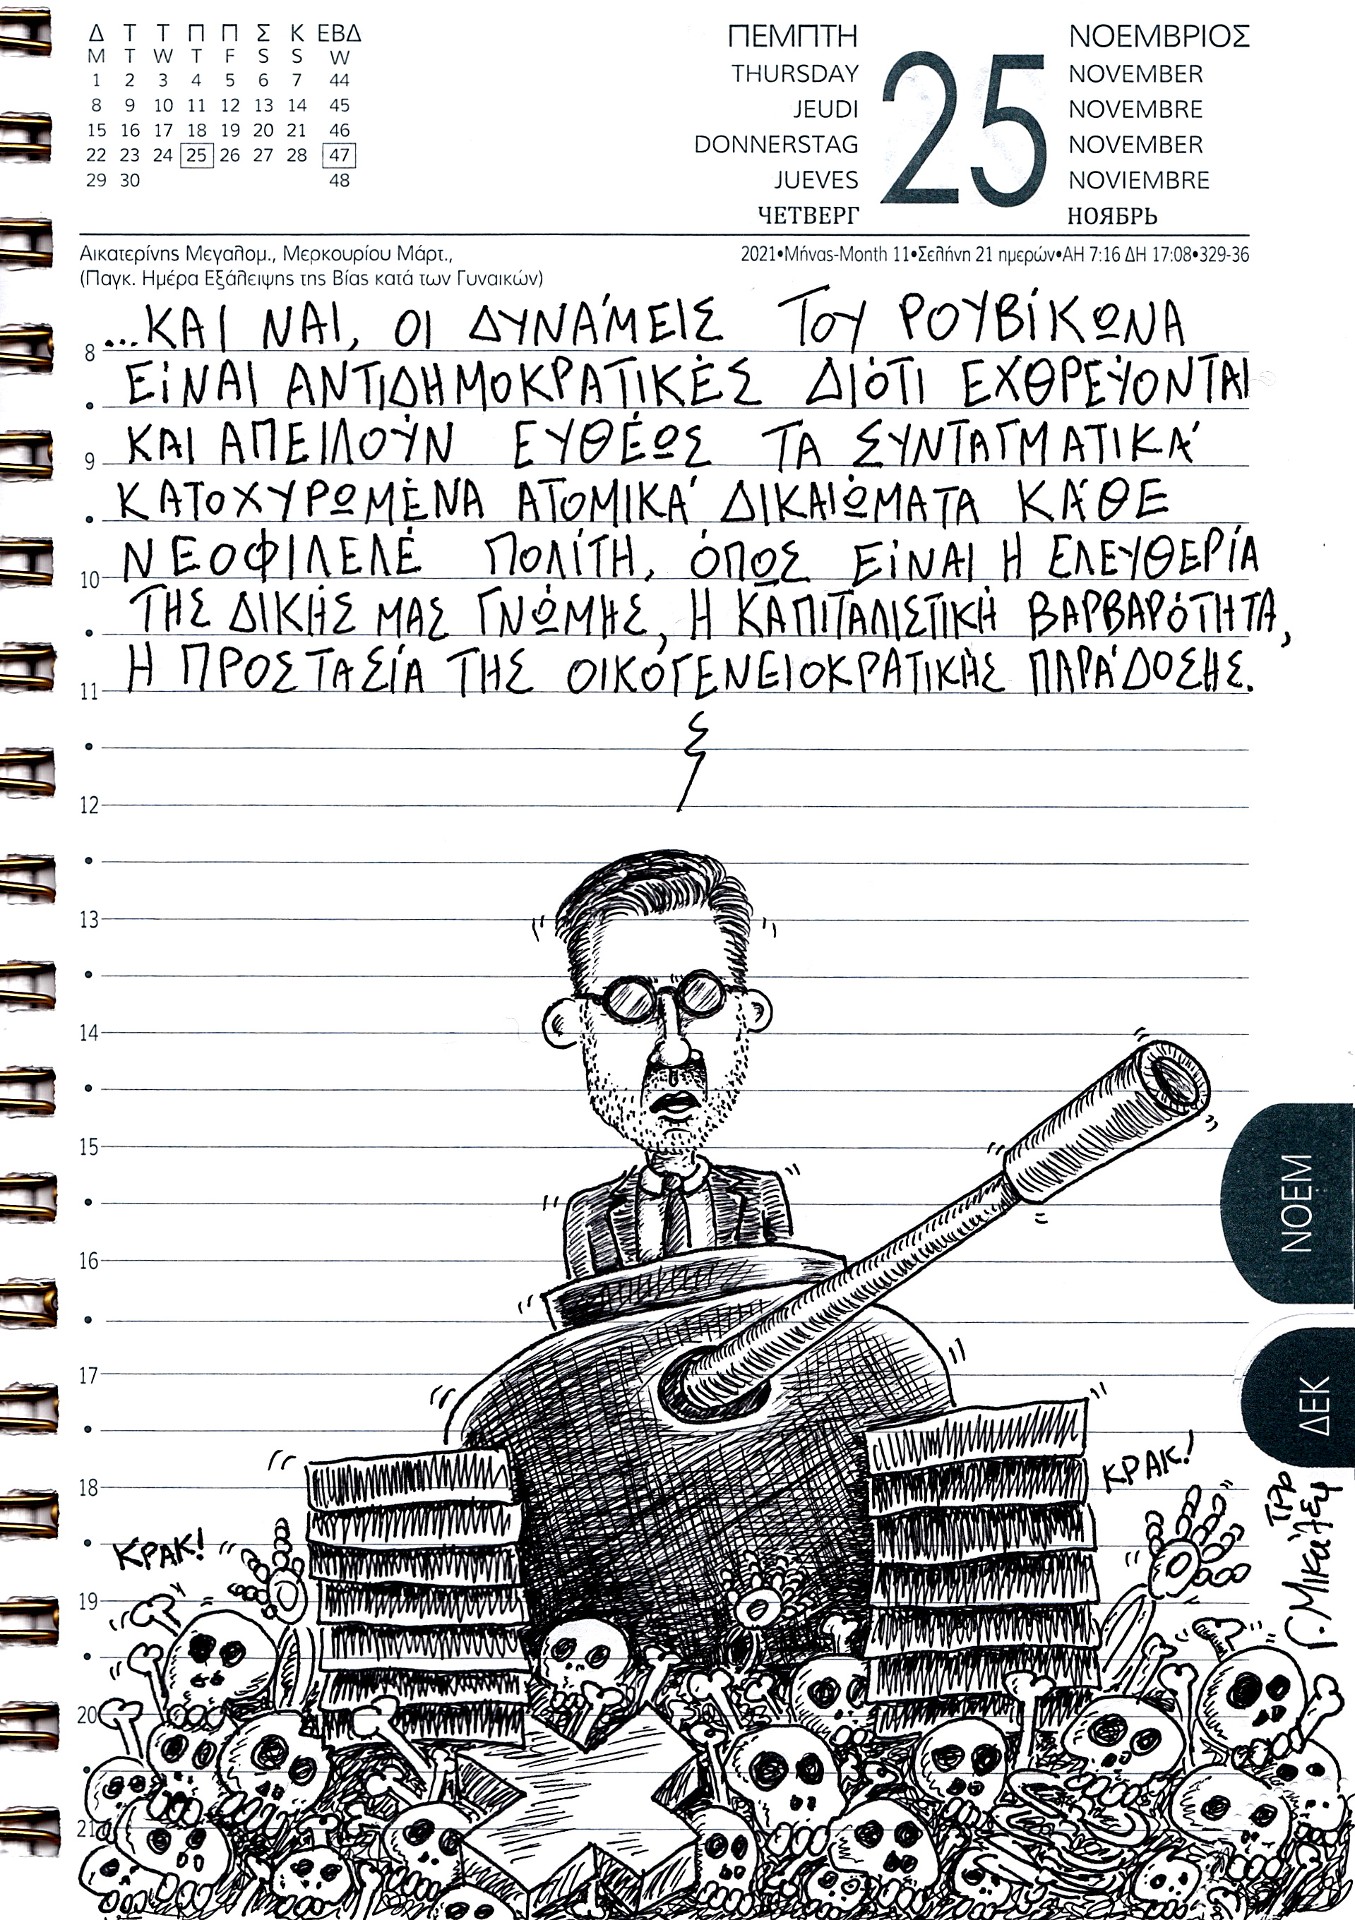 Δ Τ Τ Π Π Σ Κ ΕΒΔ
M T W T F S S W
1 2 3 4 5 6 7 44
8 9 10 11 12 13 14 45
15 16 17 18 19 20 21 46
22 23 24 25 26 27 28 47
29 30 48
ΠΕΜΠΤΗ
THURSDAY
JEUDI
DONNERSTAG
JUEVES
ЧЕТВЕРГ
25
ΝΟΕΜΒΡΙΟΣ
NOVEMBER
NOVEMBRE
NOVEMBER
NOVIEMBRE
НОЯБРЬ
Αικατερίνης Μεγαλομ., Μερκουρίου Μάρτ.,
(Παγκ. Ημέρα Εξάλειψης της Βίας κατά των Γυναικών)
2021•Μήνας-Month 11•Σελήνη 21 ημερών•ΑΗ 7:16 ΔΗ 17:08•329-36
...ΚΑΙ ΝΑΙ, ΟΙ ΔΥΝΆΜΕΙΣ ΤΟΥ ΡΟΥΒΊΚΩΝΑ
8
ΕΊΝΑΙ ΑΝΤΙΔΗΜΟΚΡΑΤΙΚΈΣ ΔΙΌΤΙ ΕΧΘΡΕΎΟΝΤΑΙ
ΚΑΙ ΑΠΕΙΛΟΎΝ ΕΥΘΈΩΣ ΤΑ ΣΥΝΤΑΓΜΑΤΙΚΆ
9
ΚΑΤΟΧΥΡΩΜΈΝΑ ΑΤΟΜΙΚΆ ΔΙΚΑΙΏΜΑΤΑ ΚΆΘΕ
ΝΕΟΦΙΛΕΛΈ ΠΟΛΊΤΗ, ΌΠΩΣ ΕΊΝΑΙ Η ΕΛΕΥΘΕΡΊΑ
10
ΤΗΣ ΔΙΚΉΣ ΜΑΣ ΓΝΏΜΗΣ, Η ΚΑΠΙΤΑΛΙΣΤΙΚΉ ΒΑΡΒΑΡΌΤΗΤΑ,
Η ΠΡΟΣΤΑΣΊΑ ΤΗΣ ΟΙΚΟΓΕΝΕΙΟΚΡΑΤΙΚΉΣ ΠΑΡΆΔΟΣΗΣ.
11
12
13
14
15
ΝΟΕΜ
16
17
ΔΕΚ
18
ΚΡΑΚ!
ΚΡΑΚ!
19
20
21
Γ. Μικαλέφ